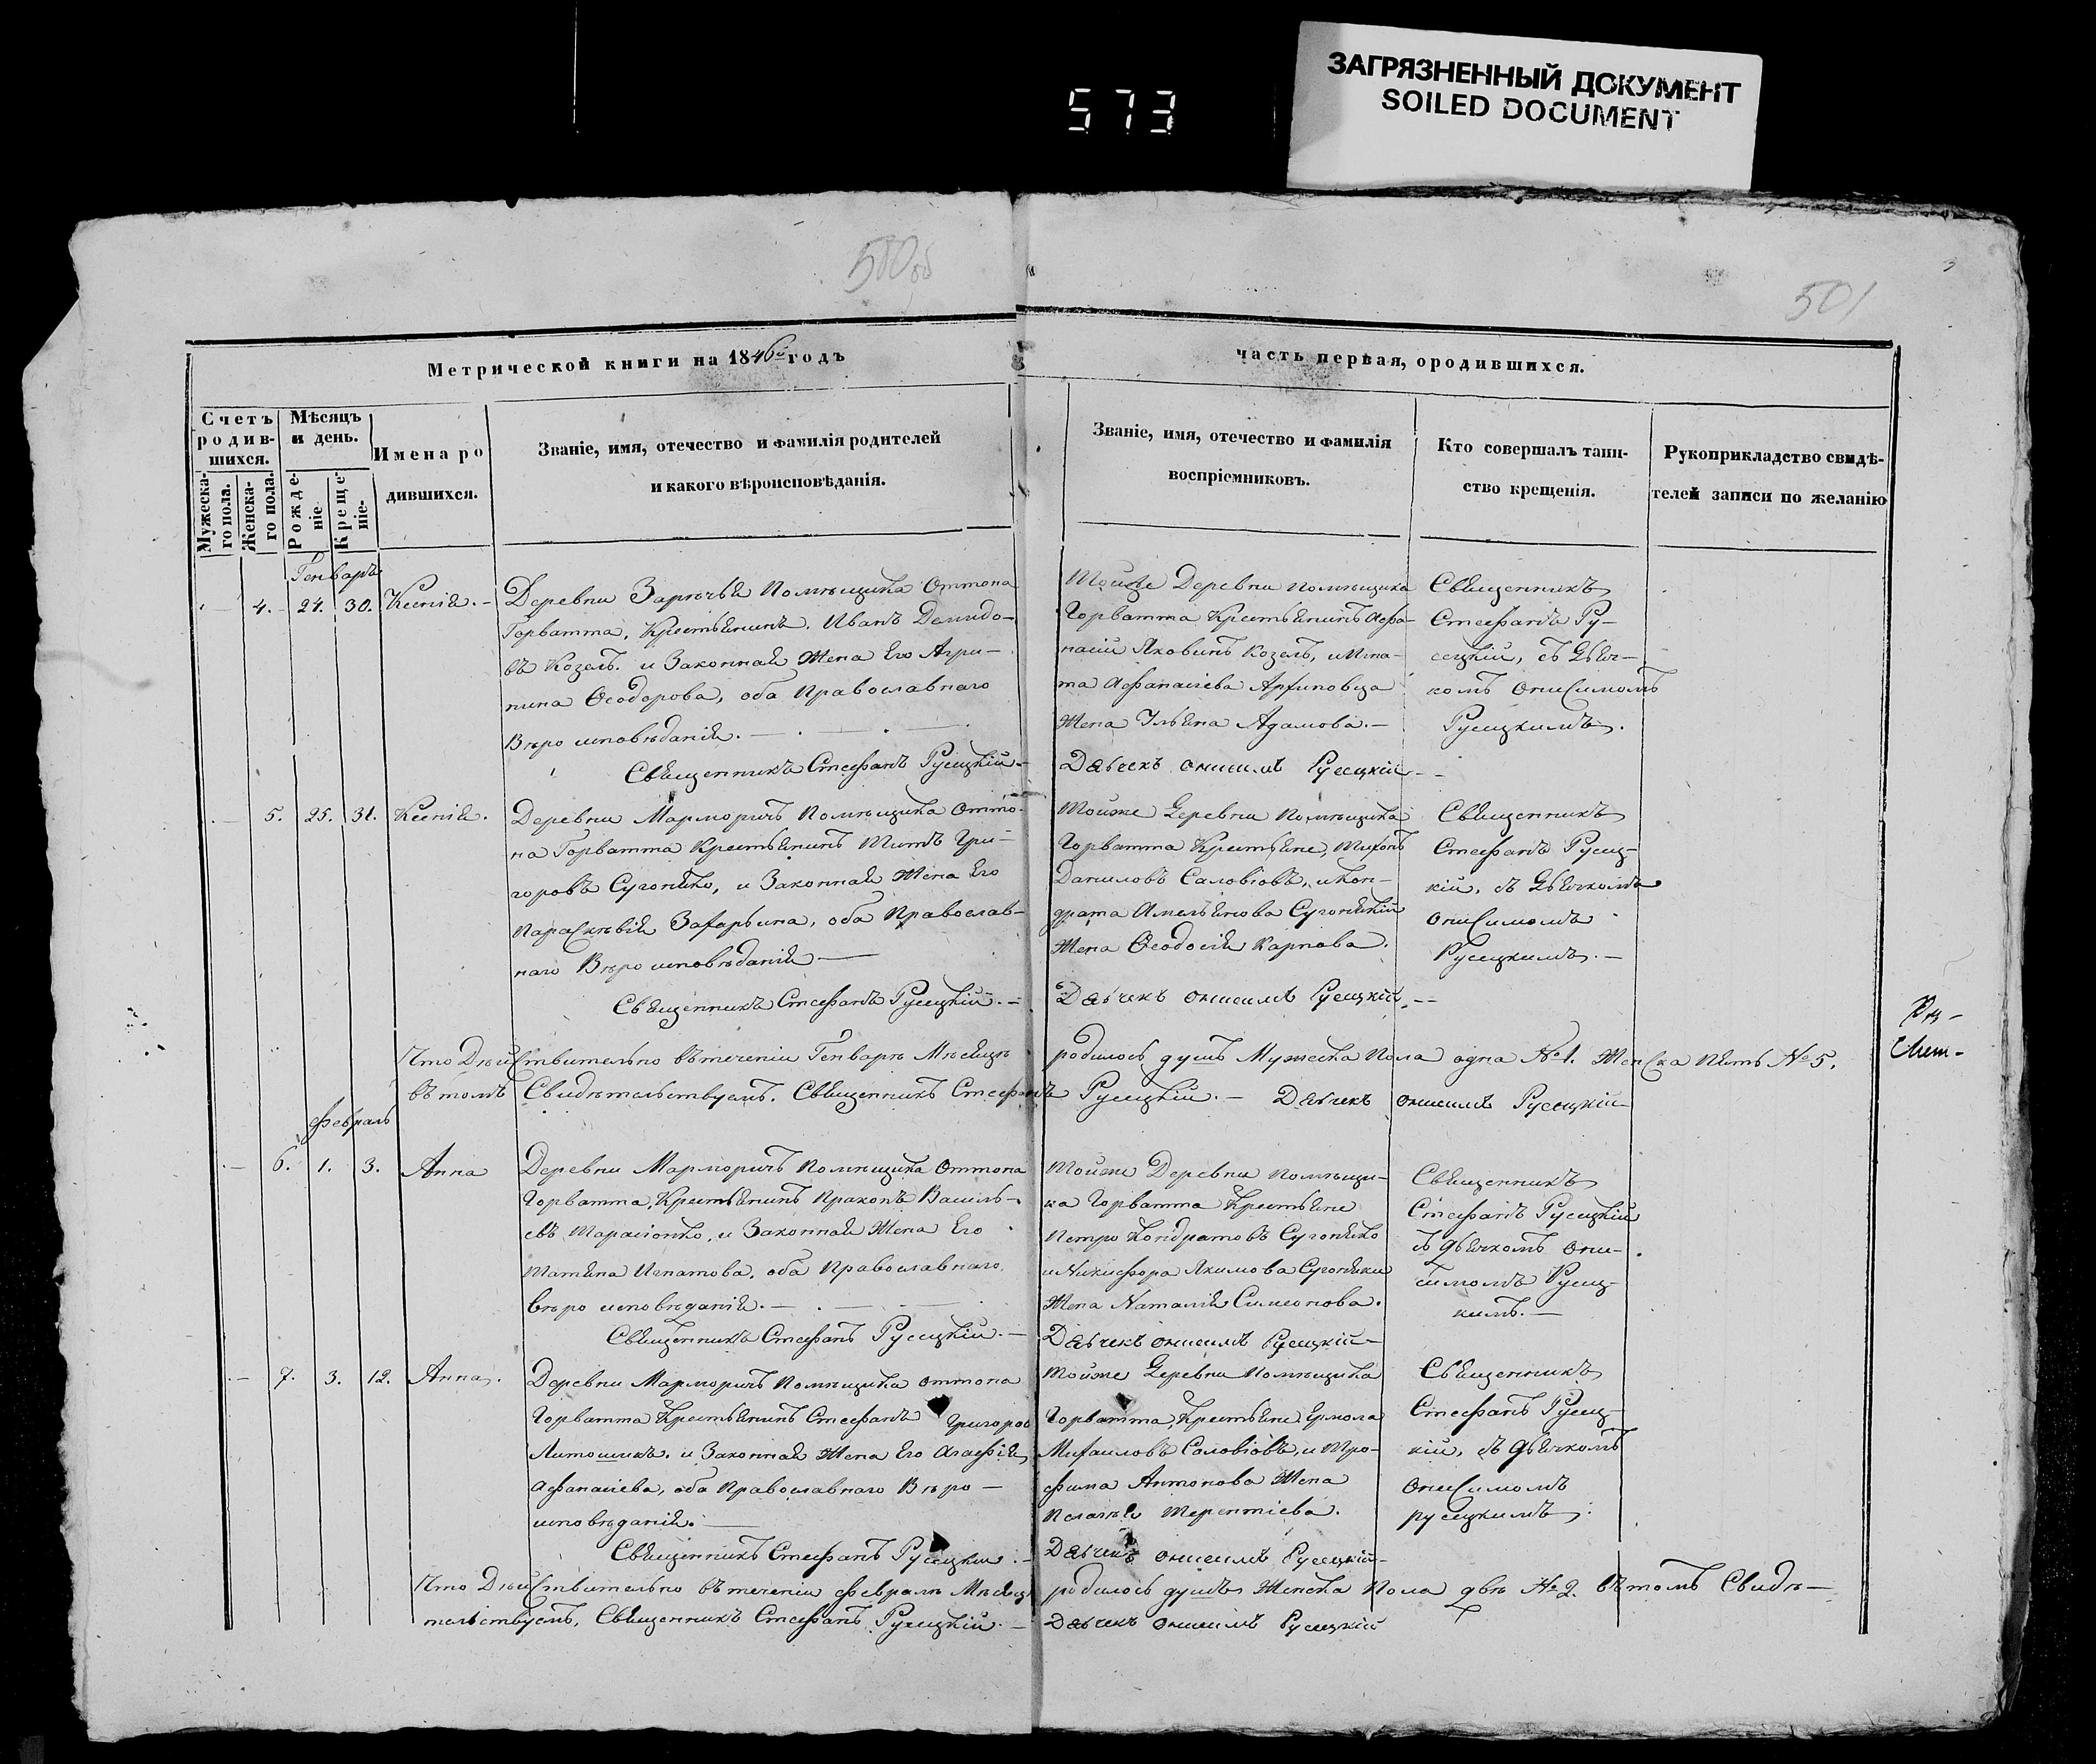 ЗАГРЯЗНЕННЫЙ ДОКУМЕНТ
SOILED DOCUMENT
573
500об
501
Метрической книги на 1846й годъ
часть первая, ородившихся.
Счетъ родив-шихся.
Мужеска-го пола.
Женска-го пола.
Мѣсяцъ и день.
Рожде-ніе-
Креще-ніе-
Имена ро
дившихся.
Званіе, имя, отечество и фамилія родителей
и какого вѣроисповѣданія.
Званіе, имя, отечество и фамилія
воспріемниковъ.
Кто совершалъ таин-
ство крещенія.
Рукоприкладство свидѣ-
телей записи по желанію
Генварь
4. 24. 30. Ксенія.
Деревни Зарѣчья Помѣщика Оттона
Горватта, Крестьянинъ Иванъ Демидо-
въ Козелъ. и Законная Жена Его Агри-
пина Ѳеодорова, оба Православнаго
Вѣро исповѣданія.
Священникъ Стефанъ Русецкій
Тойже Деревни помѣщика
Горватта Крестьянинъ Афа-
насій Яковинъ Козелъ, и Игна-
та Афанасіева
Жена Ульяна Адамова.
Дьячекъ Онисимъ Русецкій
Священникъ
Стефанъ Ру-
сецкій, съ Дьяч-
комъ Онисимомъ
Русецкимъ.
5. 25. 31. Ксенія.
Деревни Марморичъ Помѣщика Отто-
на Горватта Крестьянинъ Титъ Гри-
горовъ Сугоняко, и Законная Жена Его
Параскѣвія Захарьина, оба Православ-
наго Вѣро исповѣданія
Священникъ Стефанъ Русецкій.
Тойже Деревни Помѣщика
Горватта Крестьяне, Тихонъ
Даниловъ Саловіовъ, и Кон-
драта Амельянова Сугоняки
Жена Ѳеодосія Карпова.
Дьячекъ Онисимъ Русецкій
Священникъ
Стефанъ Русец-
кій, съ Дьячкомъ
Онисимомъ
Русецкимъ.
Что Дѣйствительно въ теченіи Генваря Мѣсяца родилось душъ Мужеска Пола одна №1. Женска Пять №5.
въ томъ Свидѣтельствуемъ. Священникъ Стефанъ Русецкій. Дьячекъ Онисимъ Русецкій
Февраль
6. 1. 3. Анна
Деревни Марморичъ Помѣщика Оттона
Горватта, Крестьянинъ Пракопъ Василь-
евъ Тарасіонко, и Законная Жена Его
Татьяна Игнатова, оба Православнаго
вѣро исповѣданія.
Священникъ Стефанъ Русецкій.
Тойже Деревни помѣщи-
ка Горватта Крестьяне
Петро Кондратовъ Сугоняко
и Никифора Якимова Сугоняки
Жена Наталія Симеонова.
Дьячекъ Онисимъ Русецкій
Священникъ
Стефанъ Русецкій
съ дьячкомъ Они-
симомъ Русец-
кимъ.
7. 3. 12. Анна.
Деревни Марморичъ Помѣщика Оттона
Горватта Крестьянинъ Стефанъ Григоров
Литошикъ. и Законная Жена Его Агафія
Афанасіева, оба Православнаго Вѣро
исповѣданія.
Священникъ Стефанъ Русецкій.
Тойже Деревни Помѣщика
Горватта, Крестьяне Ермола
Михаиловъ Саловіовъ, и Тро-
фима Антонова Жена
Пелагѣя Терентіева.
Дьячекъ Онисимъ Русецкій
Священникъ
Стефанъ Русец-
кій, съ дьячкомъ
Онисимомъ
Русецкимъ.
Что Дѣйствительно въ теченіи Февраля Мѣсяца родилось душъ Женска Пола двѣ №2. въ томъ Свидѣ-
тельствуемъ, Священникъ Стефанъ Русецкій. Дьячекъ Онисимъ Русецкій